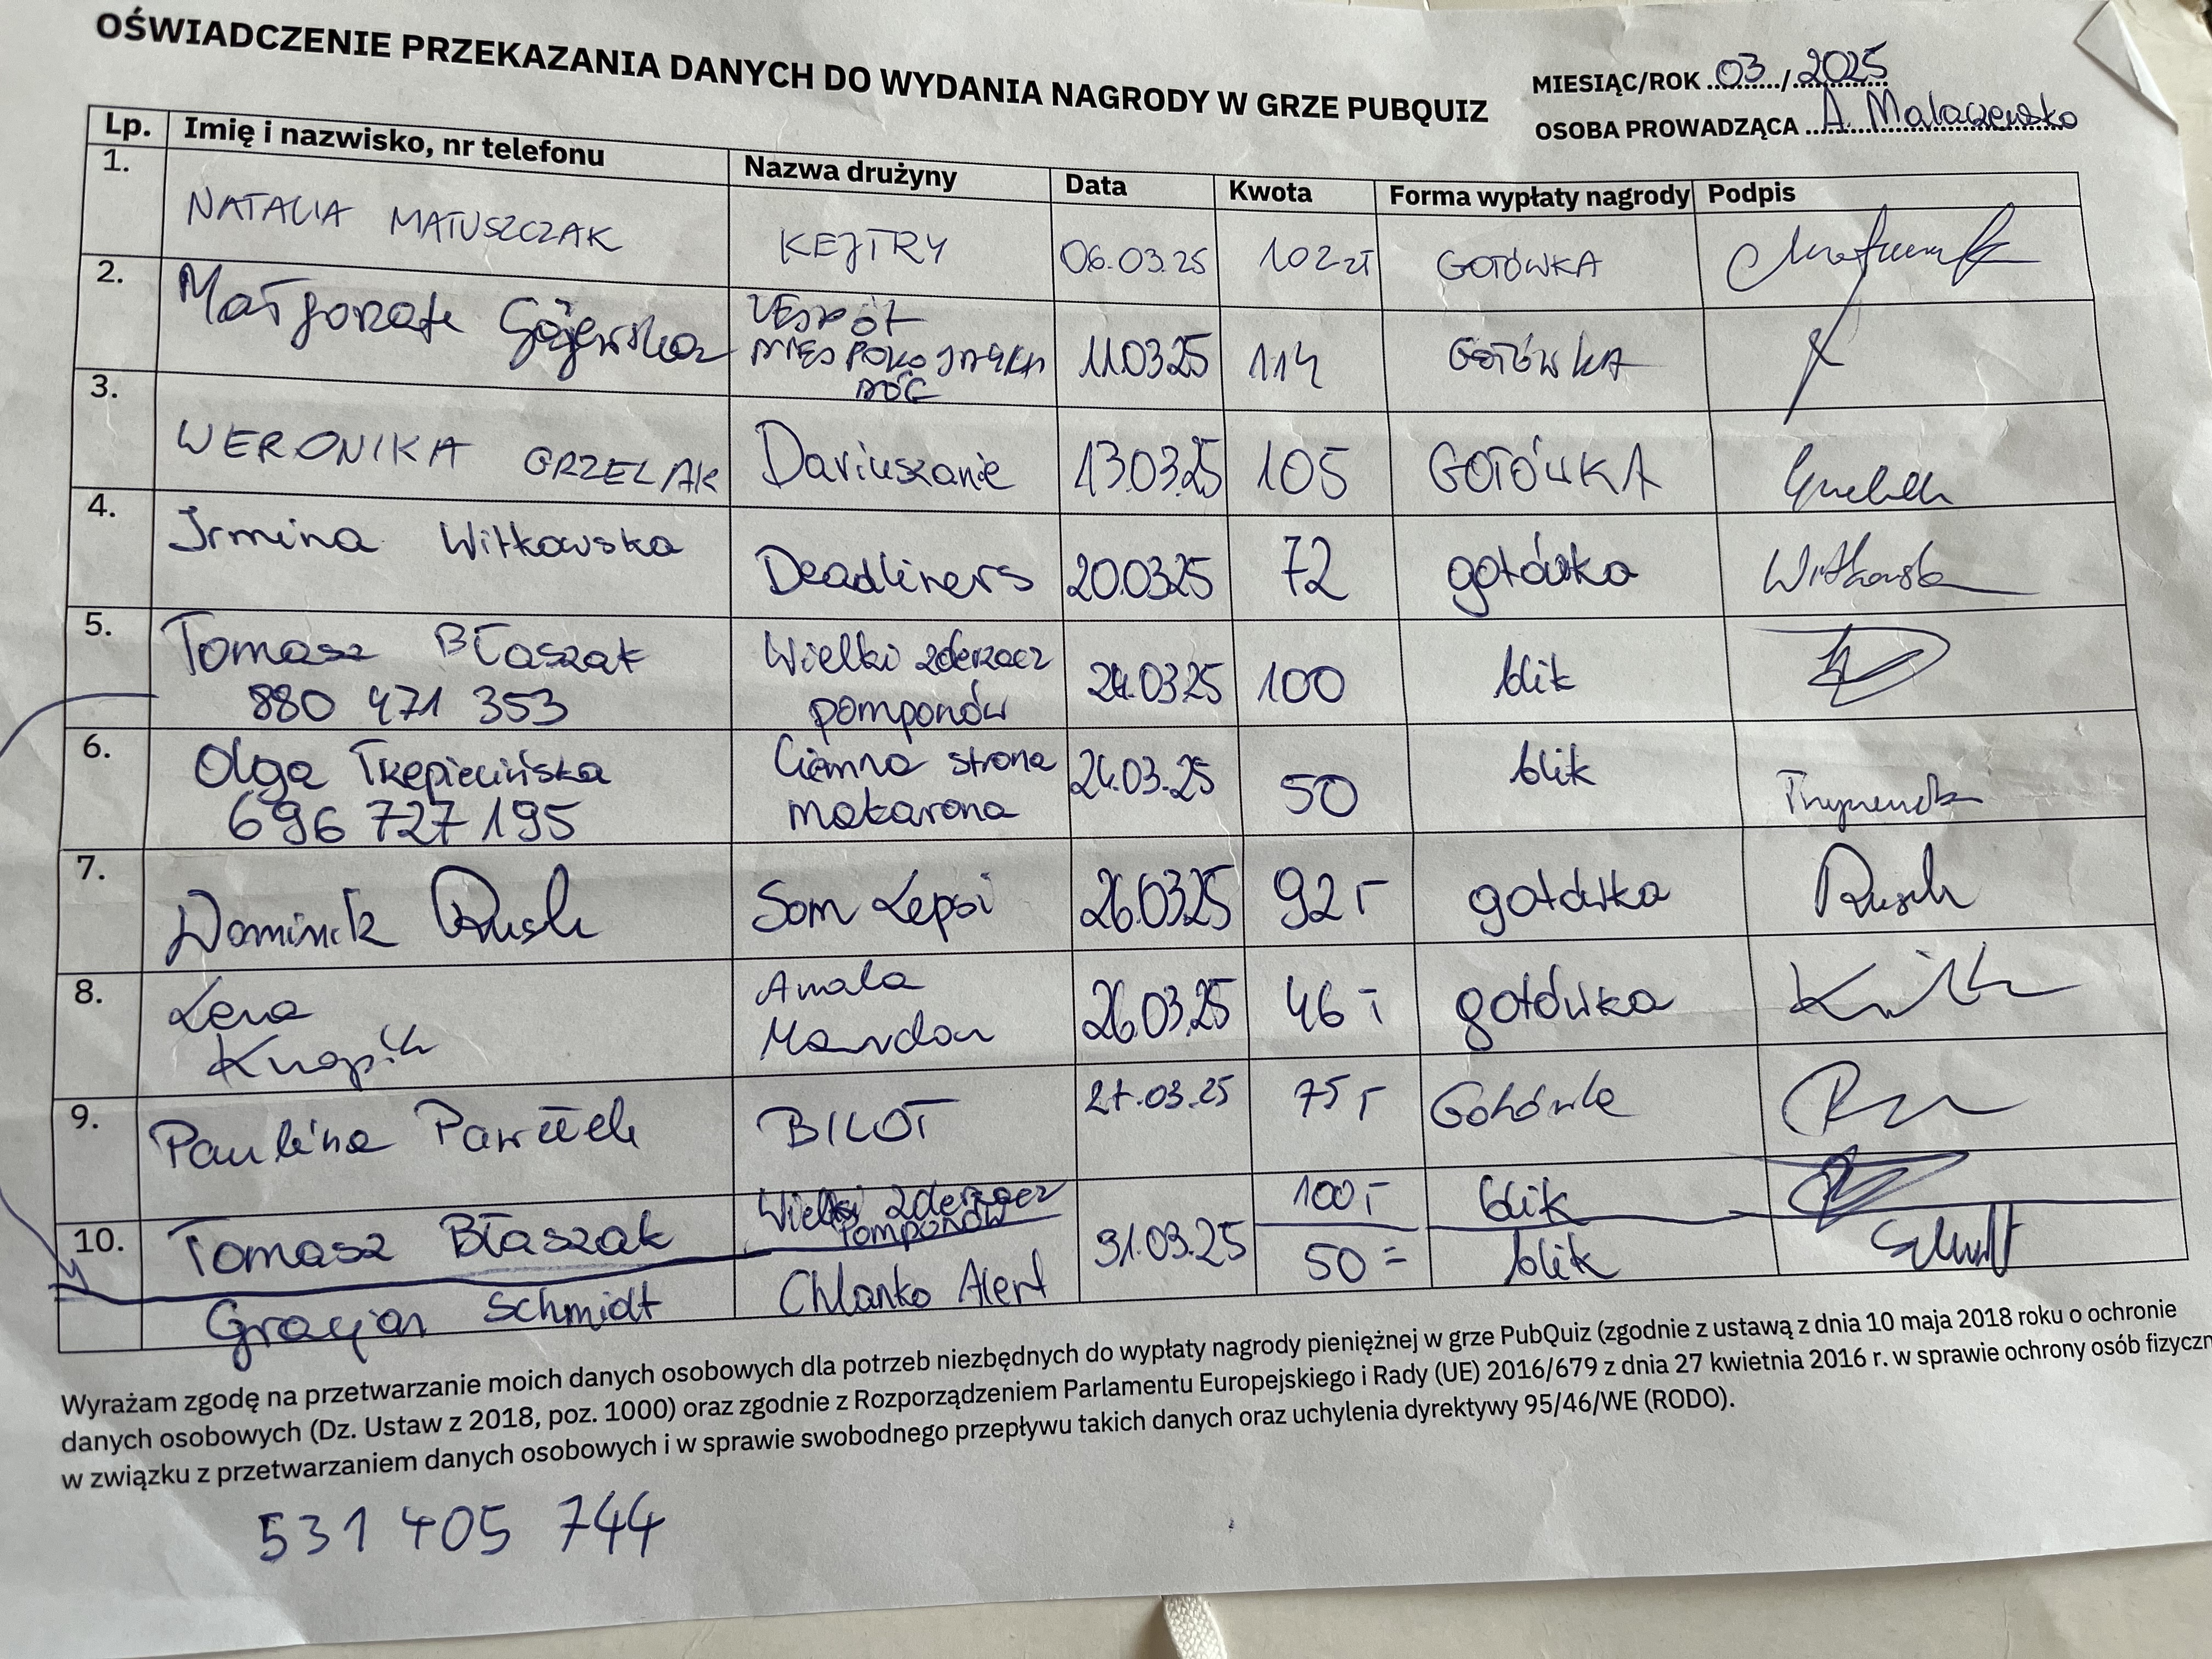 OŚWIADCZENIE PRZEKAZANIA DANYCH DO WYDANIA NAGRODY W GRZE PUBQUIZ
MIESIĄC/ROK 03/2025
OSOBA PROWADZĄCA A. Malaczewska
Lp. Imię i nazwisko, nr telefonu Nazwa drużyny Data Kwota Forma wypłaty nagrody Podpis
1. NATALIA MATUSZCZAK KEJTRY 06.03.25 102 zł GOTÓWKA
2. Małgorzata 11.03.25 114 GOTÓWKA
ZESPÓŁ
NIESPOKOJNYCH
NÓG
3. WERONIKA GRZELAK Dariuszanie 13.03.25 105 GOTÓWKA
4. Irmina Witkowska Deadliners 20.03.25 72 gotówka Witkowska
5. Tomasz Błaszak Wielki zderzacz 24.03.25 100 blik
880 471 353 pomponów
6. Olga Trepiecińska Ciemna strona 24.03.25 50 blik
696 727 195 makarona
7. Dominik Rusch Som Lepsi 26.03.25 92,- gotówka Rusch
8. Lena Amala 26.03.25 46,- gotówka
Knapik Mandou
9. Paulina Pawełek BILOT 27.03.25 75,- Gotówka
10. Tomasz Błaszak Wielki zderzacz 31.03.25 100,- blik
pomponów
Gracjan Schmidt Chlanko Alert 50= blik
Wyrażam zgodę na przetwarzanie moich danych osobowych dla potrzeb niezbędnych do wypłaty nagrody pieniężnej w grze PubQuiz (zgodnie z ustawą z dnia 10 maja 2018 roku o ochronie
danych osobowych (Dz. Ustaw z 2018, poz. 1000) oraz zgodnie z Rozporządzeniem Parlamentu Europejskiego i Rady (UE) 2016/679 z dnia 27 kwietnia 2016 r. w sprawie ochrony osób fizyczn
w związku z przetwarzaniem danych osobowych i w sprawie swobodnego przepływu takich danych oraz uchylenia dyrektywy 95/46/WE (RODO).
531 405 744